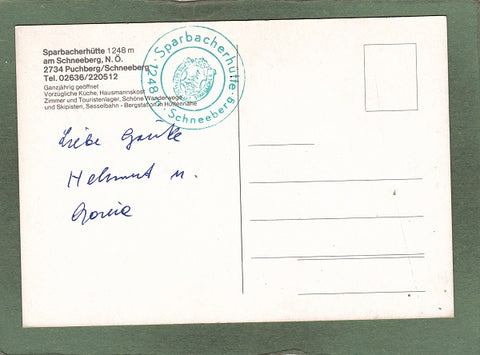 Sparbacherhütte 1248 m
am Schneeberg, N. Ö.
2734 Puchberg/Schneeberg
Tel. 02636/220512
Ganzjährig geöffnet
Vorzügliche Küche, Hausmannskost
Zimmer und Touristenlager, Schöne Wanderwege
und Skipisten, Sesselbahn - Bergstation Hüttennähe
Sparbacherhütte
1248 m
Schneeberg
Liebe Grüße
Helmut u.